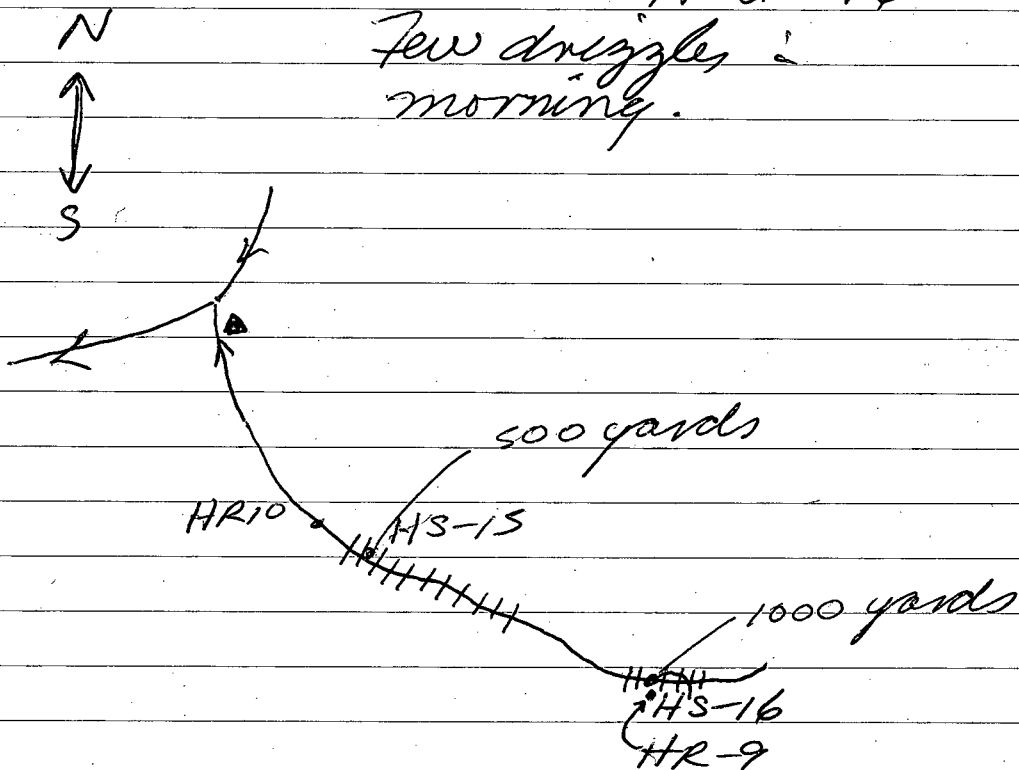 N
Few drizzles :
morning.
S
500 yards
HR10
HS-15
1000 yards
HS-16
HR-9